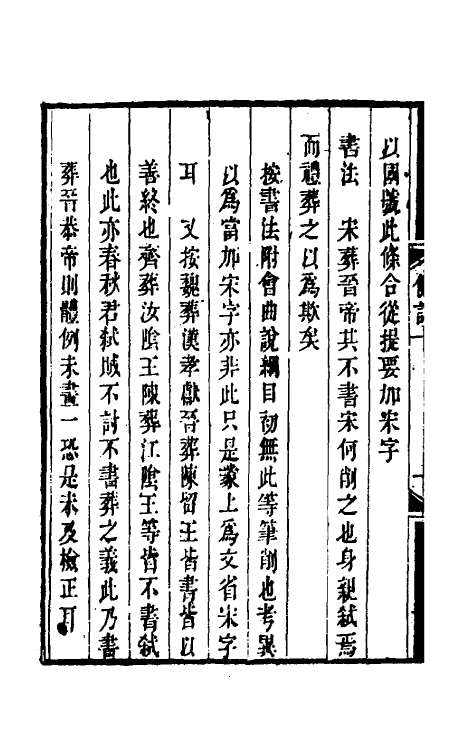 以國號此條合從提要加宋字
書法　宋葬晉帝其不書宋何削之也身親弒焉
而禮葬之以為欺矣
按書法附會曲說綱目初無此等筆削也考異
以為當加宋字亦非此只是蒙上為文省宋字
耳　又按魏葬漢孝獻晉葬陳留王皆書皆以
善終也齊葬汝陰王陳葬江陰王等皆不書弒
也此亦春秋君弒賊不討不書葬之義此乃書
葬晉恭帝則體例未畫一恐是未及檢正耳